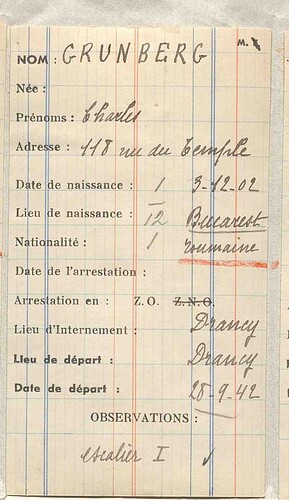 M.
NOM : GRUNBERG
Née :
Prénoms : Charles
Adresse : 118 rue du Temple
Date de naissance : 1 3-12-02
Lieu de naissance : 12 Bucarest
Nationalité : 1 roumaine
Date de l'arrestation :
Arrestation en : Z.O. Z.N.O.
Lieu d'Internement : Drancy
Lieu de départ : Drancy
Date de départ : 28-9-42
OBSERVATIONS :
escalier I ✓